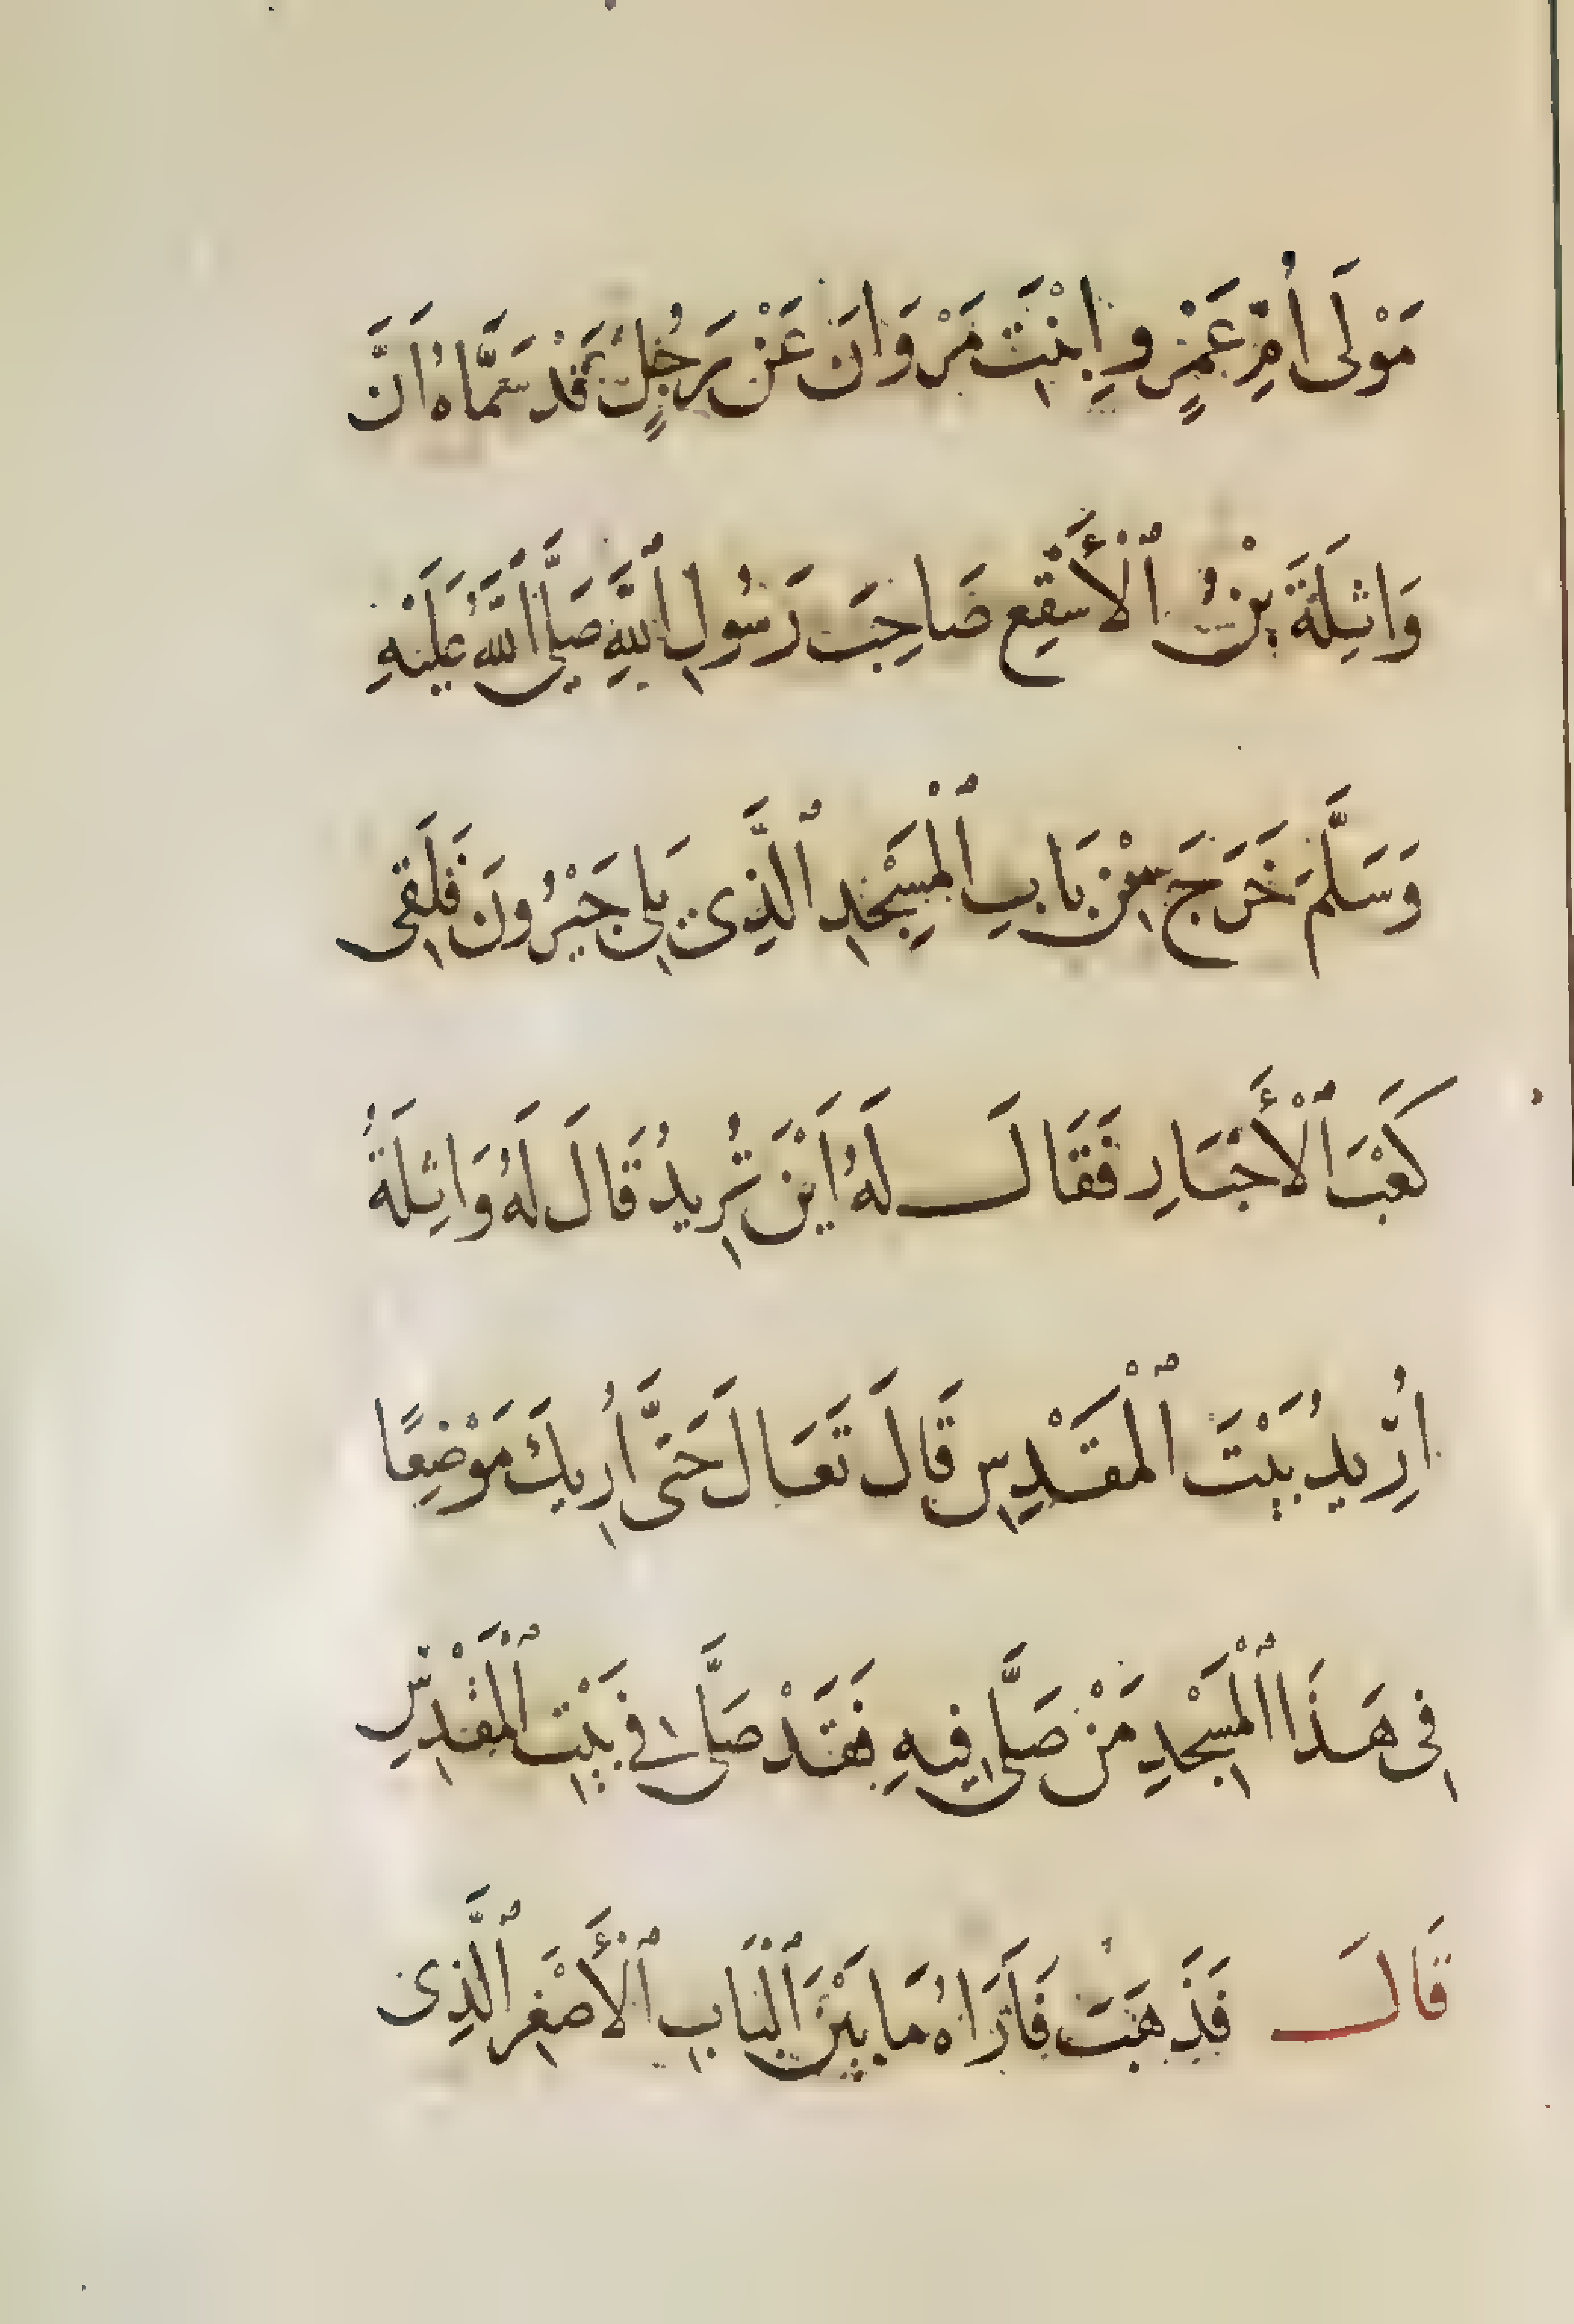 مَوْلَى أُمِّ عَمْرٍو ابْنَتِ مَرْوَانَ عَنْ رَجُلٍ قَدْ سَمَّاهُ اَنَّ
وَاثِلَةَ بْنَ ٱلْأَسْقَعِ صَاحِبَ رَسُولِ ٱللَّهِ صَلَّى ٱللَّهُ عَلَيْهِ
وَسَلَّمَ خَرَجَ مِنْ بَابِ ٱلْمَسْجِدِ ٱلَّذِى يَلِى جَيْرُونَ فَلَقِىَ
كَعْبَ ٱلْأَحْبَارِ فَقَالَ لَهُ اَيْنَ تُرِيدُ قَالَ لَهُ وَاثِلَةُ
اُرِيدُ بَيْتَ ٱلْمَقْدِسِ قَالَ تَعَالَ حَتَّى اُرِيكَ مَوْضِعًا
فِى هَذَا ٱلْمَسْجِدِ مَنْ صَلَّى فِيهِ فَقَدْ صَلَّى فِى بَيْتِ ٱلْمَقْدِسِ
قَالَ فَذَهَبَ فَاَرَاهُ مَا بَيْنَ ٱلْبَابِ ٱلْأَصْغَرِ ٱلَّذِى